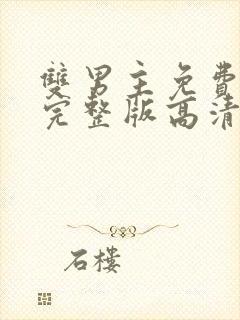 雙男主免費
完整版高清
石樓